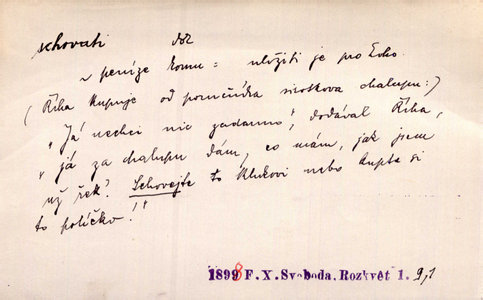 schovati dok
~ peníze komu = uložiti je pro koho.
(Říha kupuje od poručníka sirotkova chalupu:)
„Já nechci nic zadarmo", dodával Říha,
„já za chalupu dám, co mám, jak jsem
už řek'. Schovejte to klukovi nebo kupte si
to políčko!"
1898 F. X. Svoboda, Rozkvět 1. 91